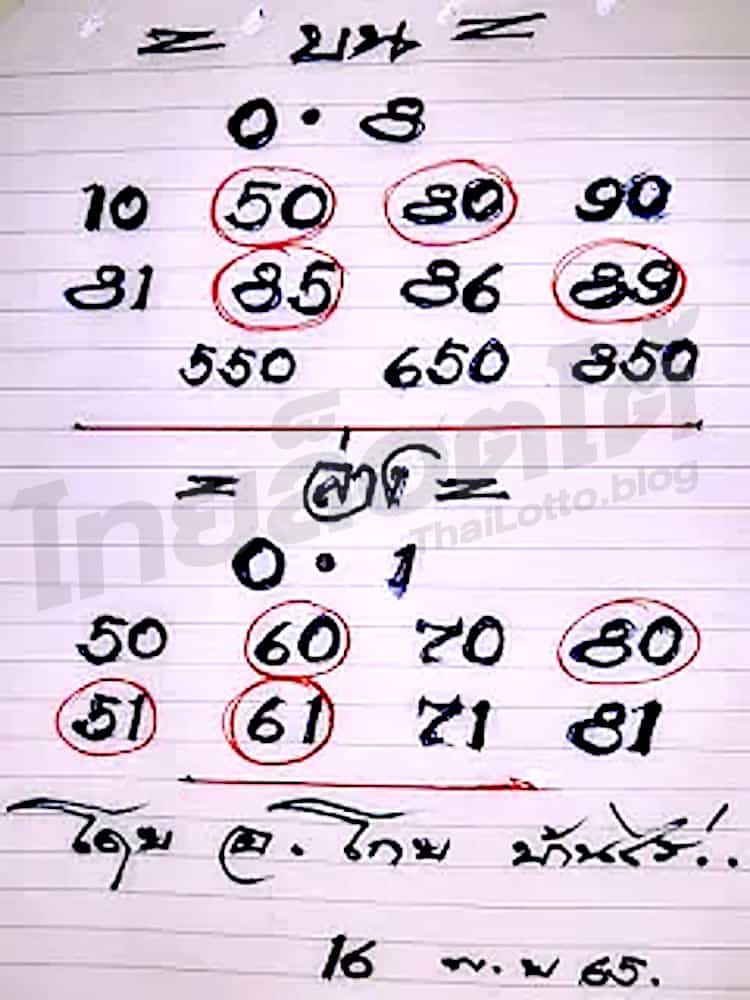 = บน =
0 . 8
10 50 80 90
81 85 86 89
550 650 850
= ล่าง =
0 . 1
50 60 70 80
51 61 71 81
โดย อ. โกย บ้านไร่..
16 พ.ย 65.
ไทยล็อตโต้
ThaiLotto.blog